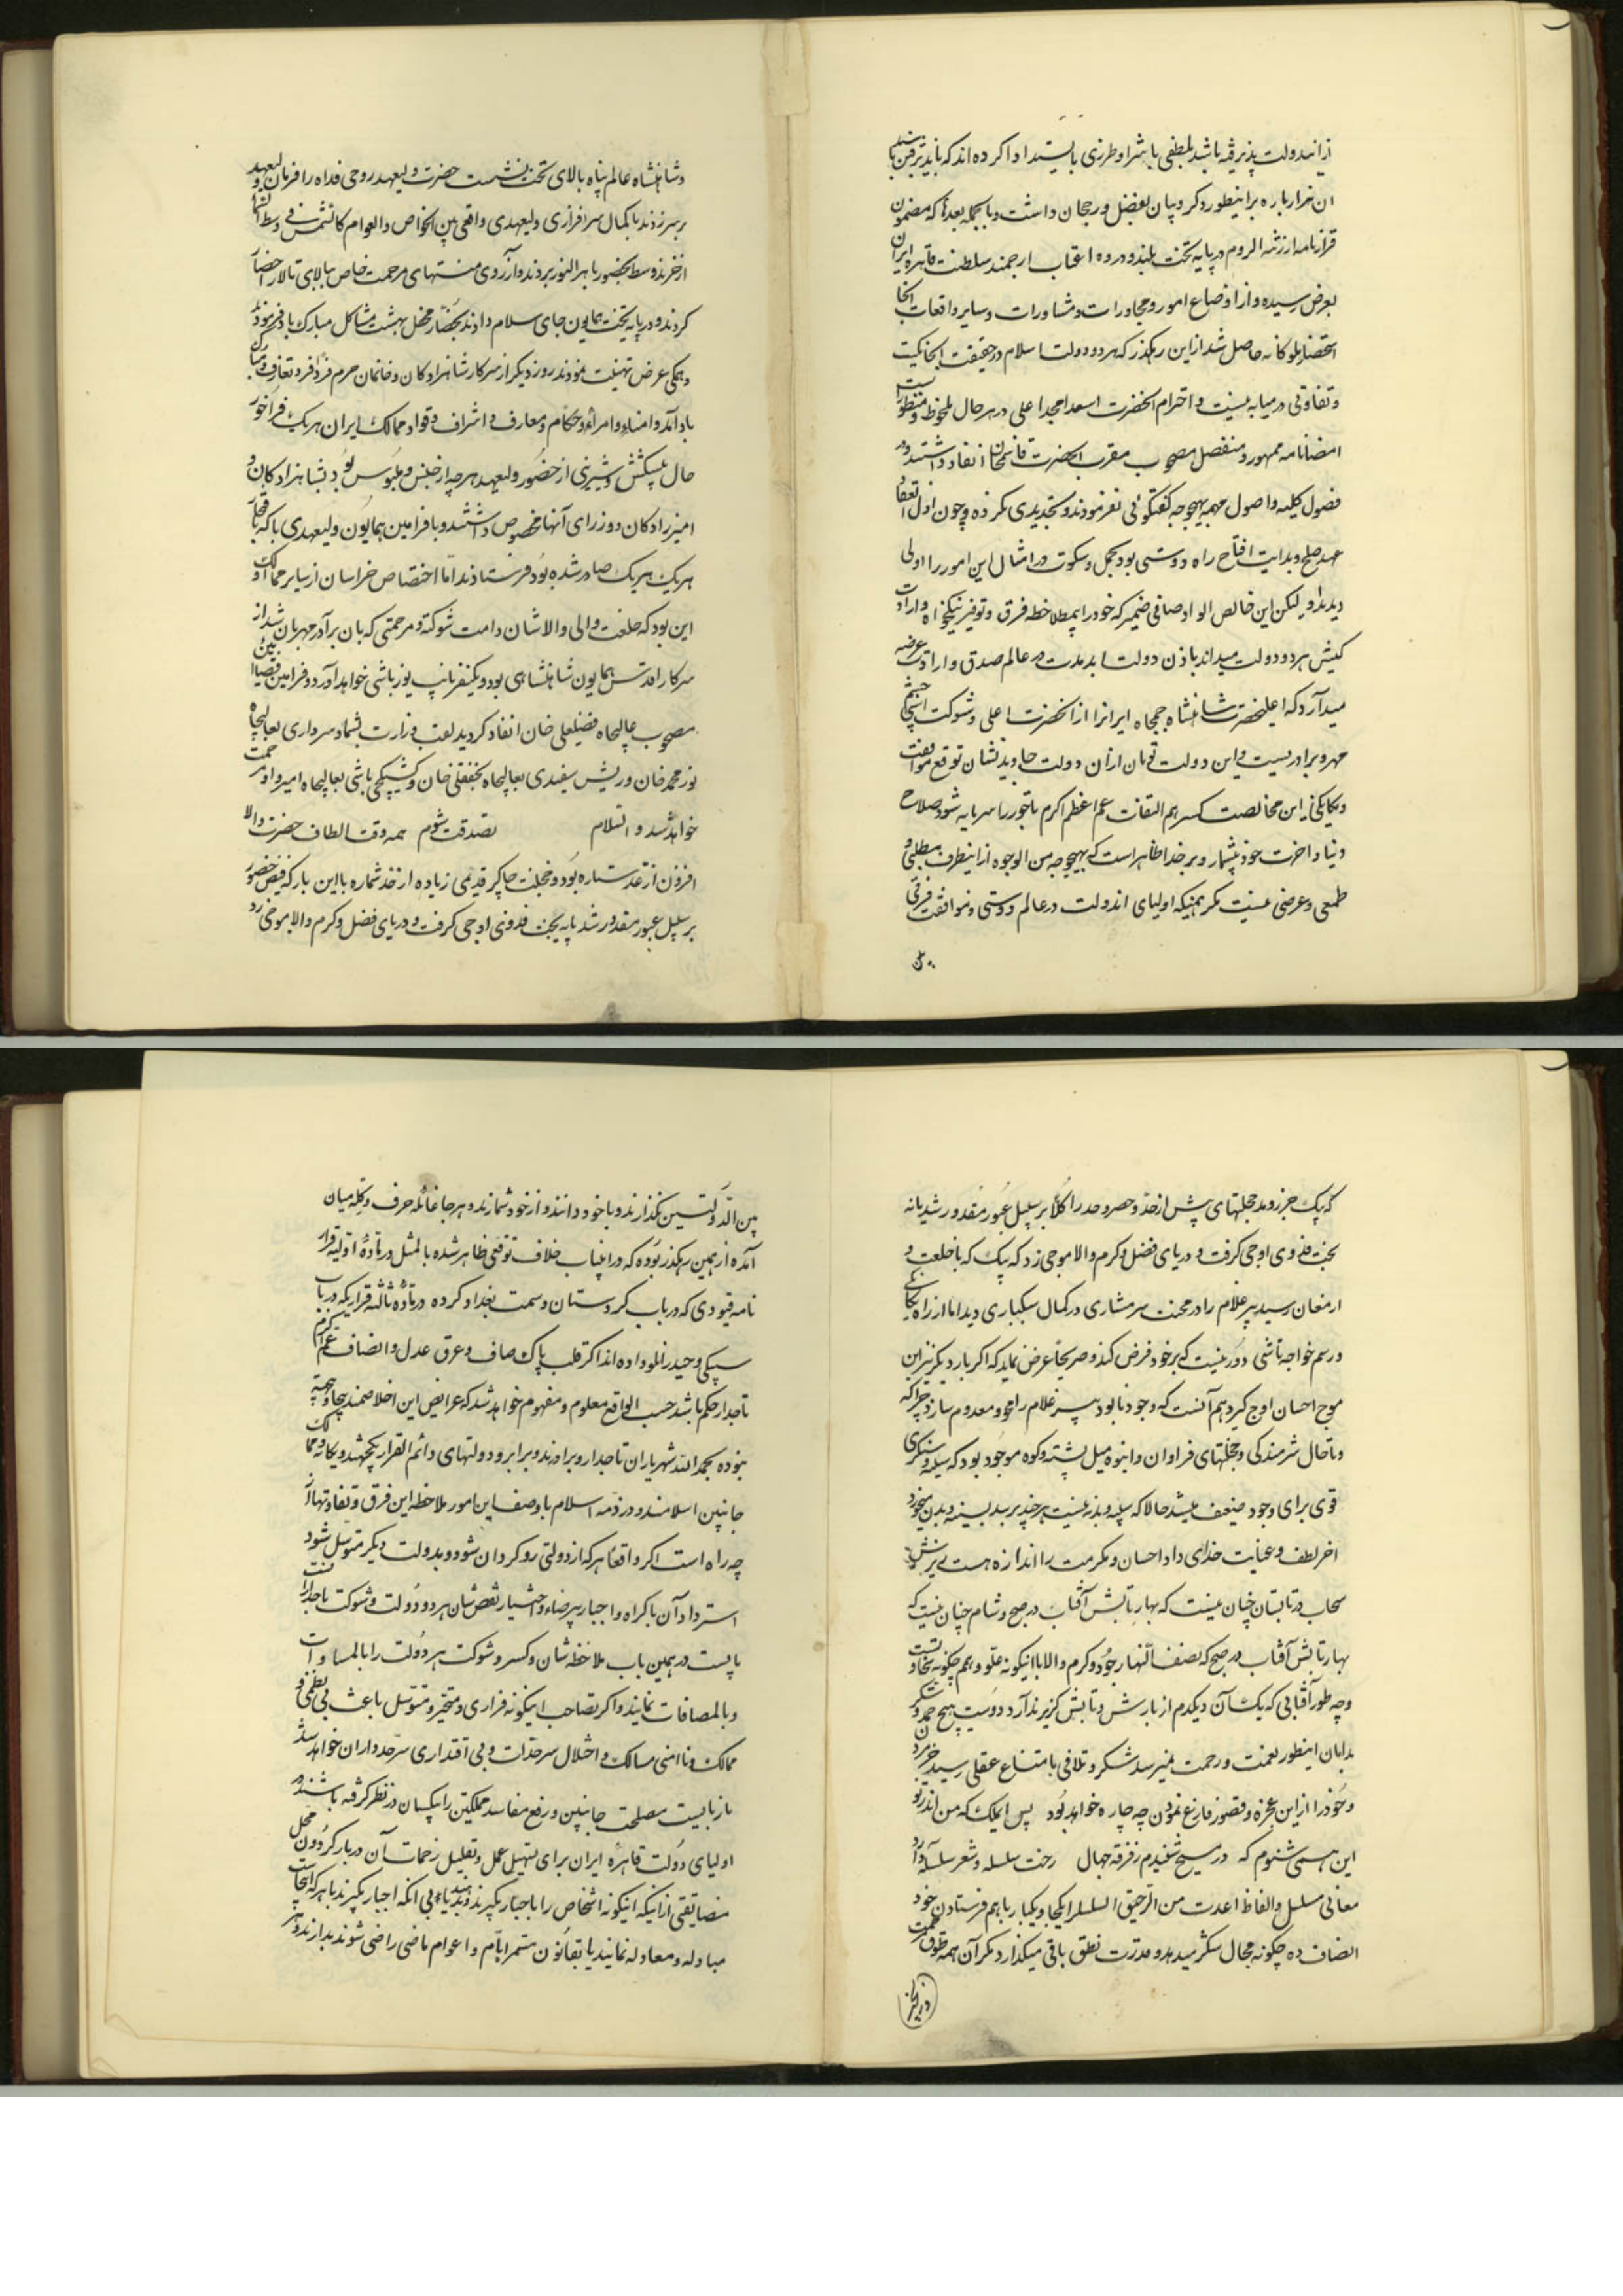 ازاندولت پذیرفته باشد بلطفی یا بشرا و طرزی بایستید ادا کرده اند که باید ترقن
ان هزار باره برانیطور و کروبیان بفضل و رجحان داشت و بالجمله بعد که مضمون
قرارنامه ارزنة الروم در پایه تخت بلند و دروه اعتاب ارجمند سلطنت قاهره ایران
بعرض رسیده و از اوضاع امور و مجاورات و مشاورات و سایر واقعات انجا
استحضار ملوکانه حاصل شد از این رهکذر که هر دو دولت اسلام در حقیقت انجا یکیست
و تفاوتی در میانه نیست و احترام انحضرت اسعد امجد اعلی در هر حال ملحوظ و منظور است
امضانامه ممهور و منفصل مصحوب مقرب الحضرت قاسمخان انفاد داشتند و در
فصول کلیه و اصول مهمه بهیچوجه گفتگوئی نفرمودند و تجدیدی نکرده و چون اول انعقاد
عهد صلح و بدایت افتتاح راه دوستی بود تحمل و سکوت در امثال این امور را اولی
دیدند و لیکن این خالص الواد صافی ضمیر که خود را بملاحظه فرق و توفیر نیکخواه و ارادت
کیش هر دو دولت میداند باذن دولت ابد مدت در عالم صدق و ارادت عرضه
میدارد که اعلیحضرت شاهنشاه جمجاه ایرانرا از انحضرت اعلی و شوکت چشم
مهر و برادریست و این دولت توامان از ان دولت جاوید نشان توقع موافقت
و یکانکی این مخالصت کسر اهم التفات عم اعظم اکرم تاجور را سرمایه شود صلاح
دنیا و اخرت خود بشمار و بر خدا ظاهر است که بهیچوجه من الوجوه از اینطرف مطلبی و
طمعی و غرضی نیست مکر همینکه اولیای اندولت در عالم دوستی و موافقت فرقی
و شاهنشاه عالم پناه بالای تخت بنشست حضرت ولیعهد روحی فداه را فرمان ولیعهد
بر سر زدند با کمال سرافرازی ولیعهدی واقعی بین الخواص و العوام کالشمس فی وسط السما
از خرند وسط بحضور باهر النور بردند و از روی منتهای مرحمت خاص ببالای تالار احضار
کردند و در پایه تخت همایون جای سلام دادند بحضار محفل بهشت مشاکل مبارک باد فرمودند
و همکی عرض تهنیت نمودند روز دیکر از سرکار شاهزادکان و خانمان حرم فرد فرد تعارف و مبارک
باد آمد و امناء و امراء و حکام و معارف و اشراف و قواد ممالک ایران هر یک فراخور
حال پیشکش و شیرینی از حضور ولیعهد هر چه از جنس و ملبوس بود بشاهزادکان و
امیرزادکان و وزرای آنها مخصوص داشتند و با فرامین همایون ولیعهدی با که بافتخار
هر یک هر یک صادر شده بود فرستادند اما اختصاص خراسان از سایر ممالک
این بود که خلعت والی والا شان دامت شوکته و مرحمتی که بان برادر مهربان شد از
سرکار اقدس همایون شاهنشاهی بود و یکنفر نایب یوزباشی خواهد آورد و فرامین
مصحوب عالیجاه فضلعلی خان انفاد کردید لقب وزارت بشما و سرداری بعالیجاه
نور محمد خان و ریش سفیدی بعالیجاه نجفقلی خان و کشیکچی باشی بعالیجاه امیر
خواهد شد و السلام تصدقت شوم همه وقت الطاف حضرت والا
افزون از عد ستاره بود و خجلت چاکر قدیمی زیاده از حد شماره با این بار که فیض حضور
بر سبیل عبور مقدور شد پایه بخت فزونی اوجی کرفت و دریای فضل و کرم والا موجی زد
که پیک جزر و مد خجلتهای پیش از حد و حصر و حد را کلا بر سبیل عبور مقدور شد پایه
بخت فزونی اوجی کرفت و دریای فضل و کرم والا موجی زد که پیک که با خلعت و
ارمغان رسید پیر غلام را در محنت سرمشاری در کمال سبکباری دید اما از راه
و رسم خواجه تاشی دور نیست که بر خود فرض کند و صریحا عرض نماید که اکر بار دیکر نیز این
موج احسان اوج کیرد هم آنست که وجود نابود پیر غلام را محو و معدوم سازد چرا که
و تا حال شرمندکی و خجلتهای فراوان و انبوه مثل پشته و کوه موجود بود
قوی برای وجود ضعیف میشد حالا که سیله و بدنه نیست هر چند بر سد بسینه و بدن میخورد
اخر لطف و عنایت خدای داد احسان و مکرمت را اندازه هست
سحاب در تابستان چنان نیست که بهار تابش آفتاب در صبح و شام چنان نیست که
بهار تابش آفتاب در صبح که نصف النهار جود و کرم والا با اینکونه علو و هم چکونه
و چه طور آفتابی که یک آن و یکدم از بارش و تابش کزیر ندارد دوست هیچ حمد و شکر
بدانان اینطور نعمت و رحمت نمیرسد شکر و تلافی با متناع عقلی رسید
و خود را از این عجزه و قصور فارغ نمودن چه چاره خواهد بود پس ایملک که من اندر تو
این همی شنوم که در مسیح نشنیدم ز فرقه جهال رحمت سلسله و شعر سلسله
معانی مسلسل و الفاظ اعدت من الرحیق السلسل را یکجا و یکبار با هم فرستادن خود
انصاف ده چکونه مجال شکر میدهد و قدرت نطق باقی میکذارد مکر آن همه
بین الدولتین نکذارند و با خود دانند و از خود شمارند و هر جا غائله حرف و کله میان
آمده از همین رهکذر بوده که در اینباب خلاف توقعی ظاهر شده بالمثل در ماده اولیه قرار
نامه قیودی که در باب کردستان و سمت بغداد کرده در ماده ثالثه قراریکه در باب
سبیکی و حیدرانلو داده اند اکر قلب پاک صاف و عرق عدل و انصاف عم اکرم
تاجدار حکم باشد حسب الواقع معلوم و مفهوم خواهد شد که عرایض این اخلاصمند بیجا و بیجهة
نبوده بحمد الله شهریاران تاجدار و برادرند و برابر و دولتهای دائم القرار یکجهتند و یکانه و ممالک
جانبین اسلامند و در ذمه اسلام با وصف این امور ملاحظه این فرق و تفاوتها از
چه راه است اکر واقعا هر که از دولتی رو کردان شود و بدولت دیکر متوسل شود
استرداد آن با کراه و اجبار بیرضاء و اختیار نقص شان هر دو دولت و شوکت تاجدار است
بایست در همین باب ملاحظه شان و کسر و شوکت هر دو دولت را بالمساوات
و بالمصافات نمایند و اکر تصاحب اینکونه فراری و متحیر و متوسل باعث بی نظمی و
ممالک و ناامنی مسالک و اختلال سرحدات و بی اقتداری سرحدداران خواهد شد
باز بایست مصلحت جانبین و رفع مفاسد مملکتین را یکسان در نظر کرفته باشند و
اولیای دولت قاهره ایران برای تسهیل عمل و تقلیل زحمات آن دربار کردون محل
مضایقتی از اینکه اینکونه اشخاص را با اجبار بکیرند و بدهند یا بی انکه اجبار بکیرند با هر که انجاست
مبادله و معادله نمایند یا بقانون مستمر ایام و اعوام ماضی راضی شوند بدارند و هر